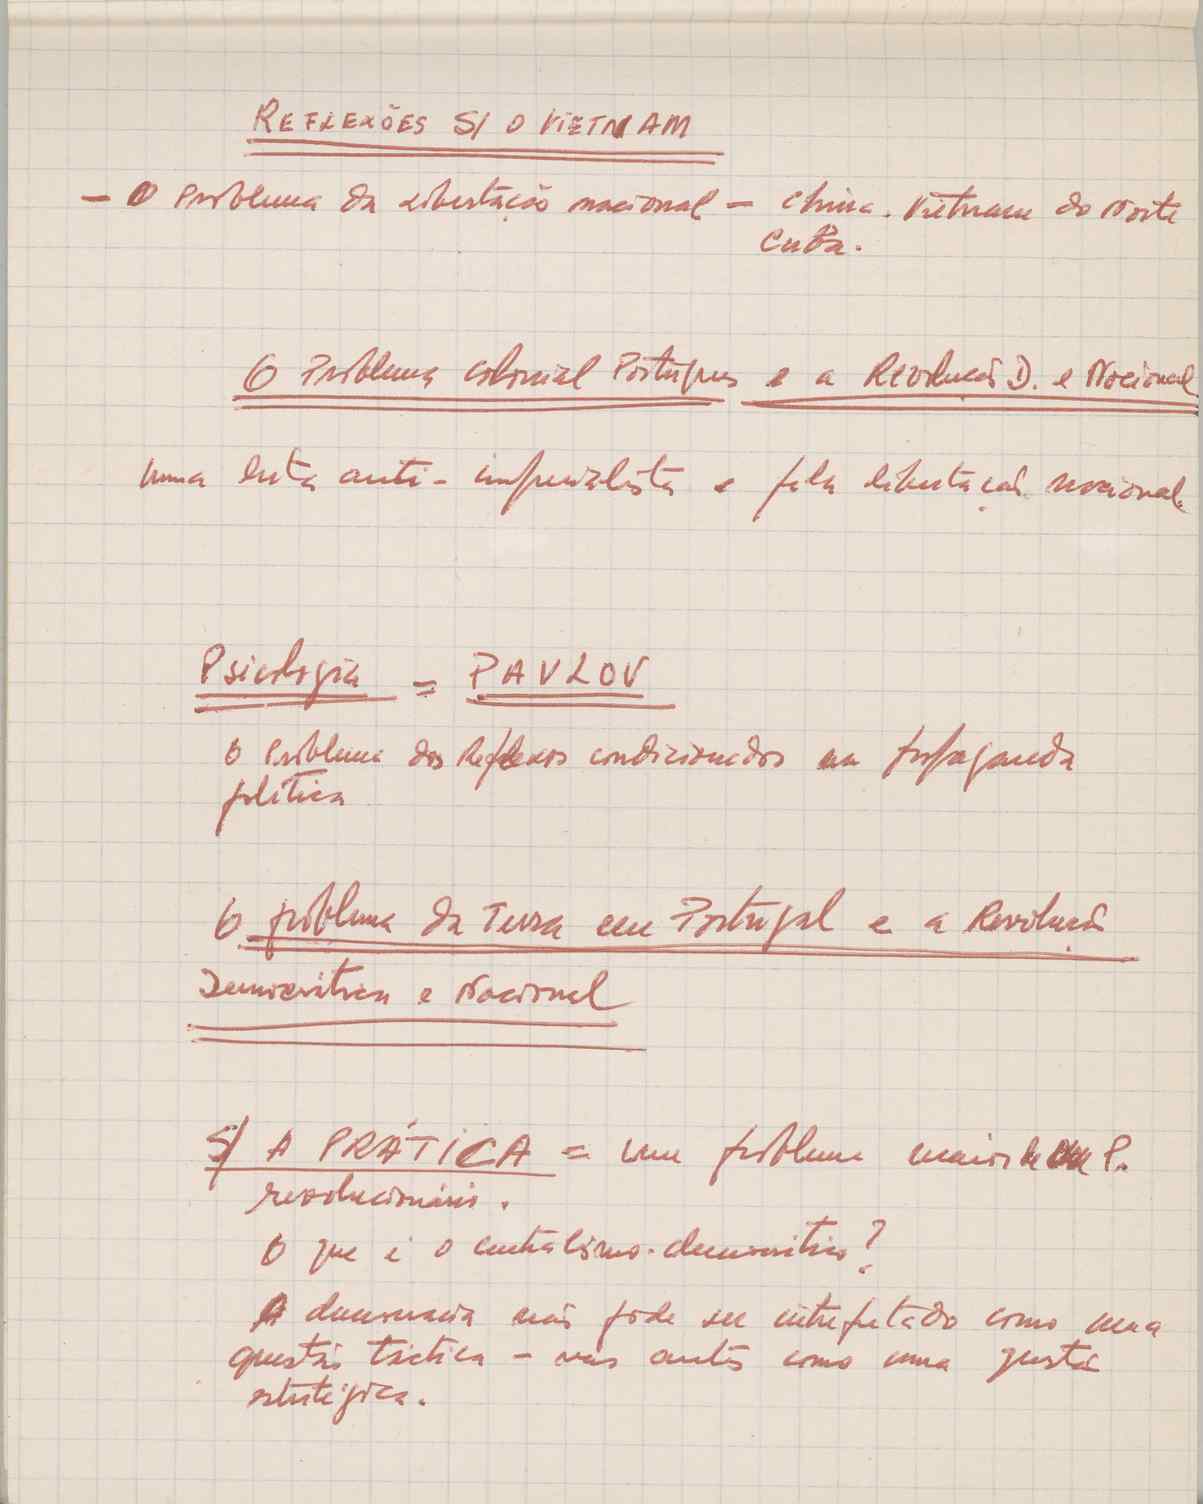 REFLEXÕES S/ O VIETNAM
- O Problema da Libertação nacional - China. Vietnam do Norte
Cuba.
O Problema colonial Português e a Revolução D. e Nacional
uma luta anti-imperialista e pela libertação nacional.
Psicologia = PAVLOV
O Problema dos Reflexos condicionados na propaganda
política
O problema da Terra em Portugal e a Revolução
Democrática e Nacional
S/ A PRÁTICA = um problema maior de P.
revolucionário.
O que é o centralismo-democrático?
A democracia não pode ser interpretado como uma
questão táctica - mas antes como uma questão
estratégica.